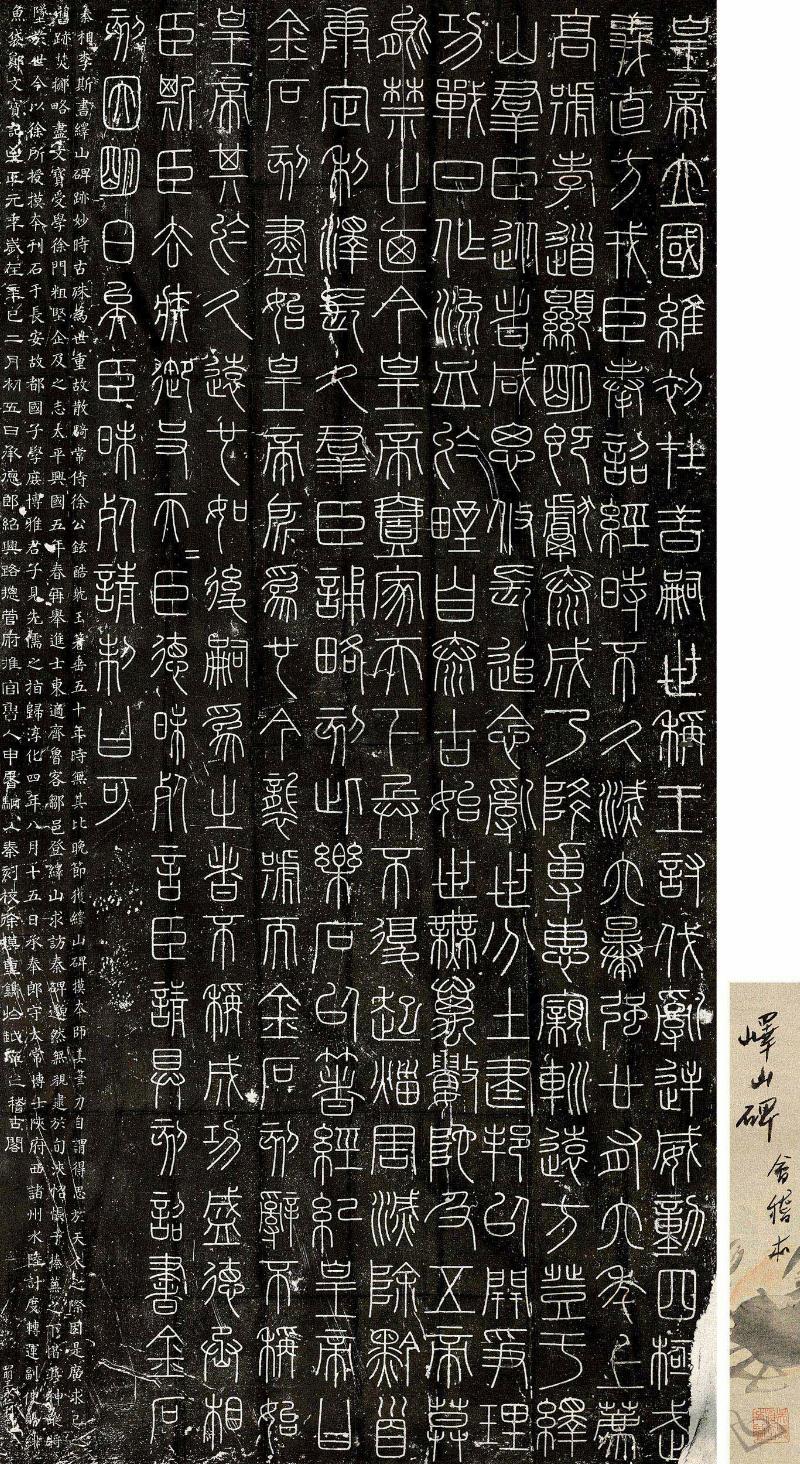 嶧山碑
會稽本
皇帝立國維初在昔嗣世稱王討伐亂逆威動四極武
義直方戎臣奉詔經時不久滅六暴強廿有六年上薦
高號孝道顯明既獻泰成乃降專惠親巡遠方登于繹
山羣臣從者咸思攸長追念亂世分土建邦以開爭理
功戰日作流血於野自泰古始世無萬數陀及五帝莫
能禁止廼今皇帝壹家天下兵不復起烖害滅除黔首
康定利澤長久羣臣誦略刻此樂石以著經紀皇帝曰
金石刻盡始皇帝所為也今襲號而金石刻辭不稱始
皇帝其於久遠也如後嗣為之者不稱成功盛德丞相
臣斯臣去疾御史夫=臣德昧死言臣請具刻詔書金石
刻因明白矣臣昧死請制曰可
秦相李斯書繹山碑跡妙時古殊為世重故散騎常侍徐公鉉酷躭玉箸垂五十年時無其比晚節獲繹山碑摸本師其筆力自謂得思於天人之際因是廣求己之
舊跡焚擲略盡文寶受學徐門粗堅企及之志太平興國五年春再舉進士東適齊魯客鄒邑登繹山求訪秦碑邈然無覩逮於旬浹怊悵于榛蕪之下惜其神蹤將
墜於世今以徐所授摸本刊石于長安故都國子學庶博雅君子見先儒之指歸淳化四年八月十五日承奉郎守太常博士陝府西諸州水陸計度轉運副使賜緋
魚袋鄭文寶記至正元年歲在辛巳二月初五日承德郎紹興路總管府推官魯人申屠駉以秦刻校徐模重鐫於越庠之稽古閣